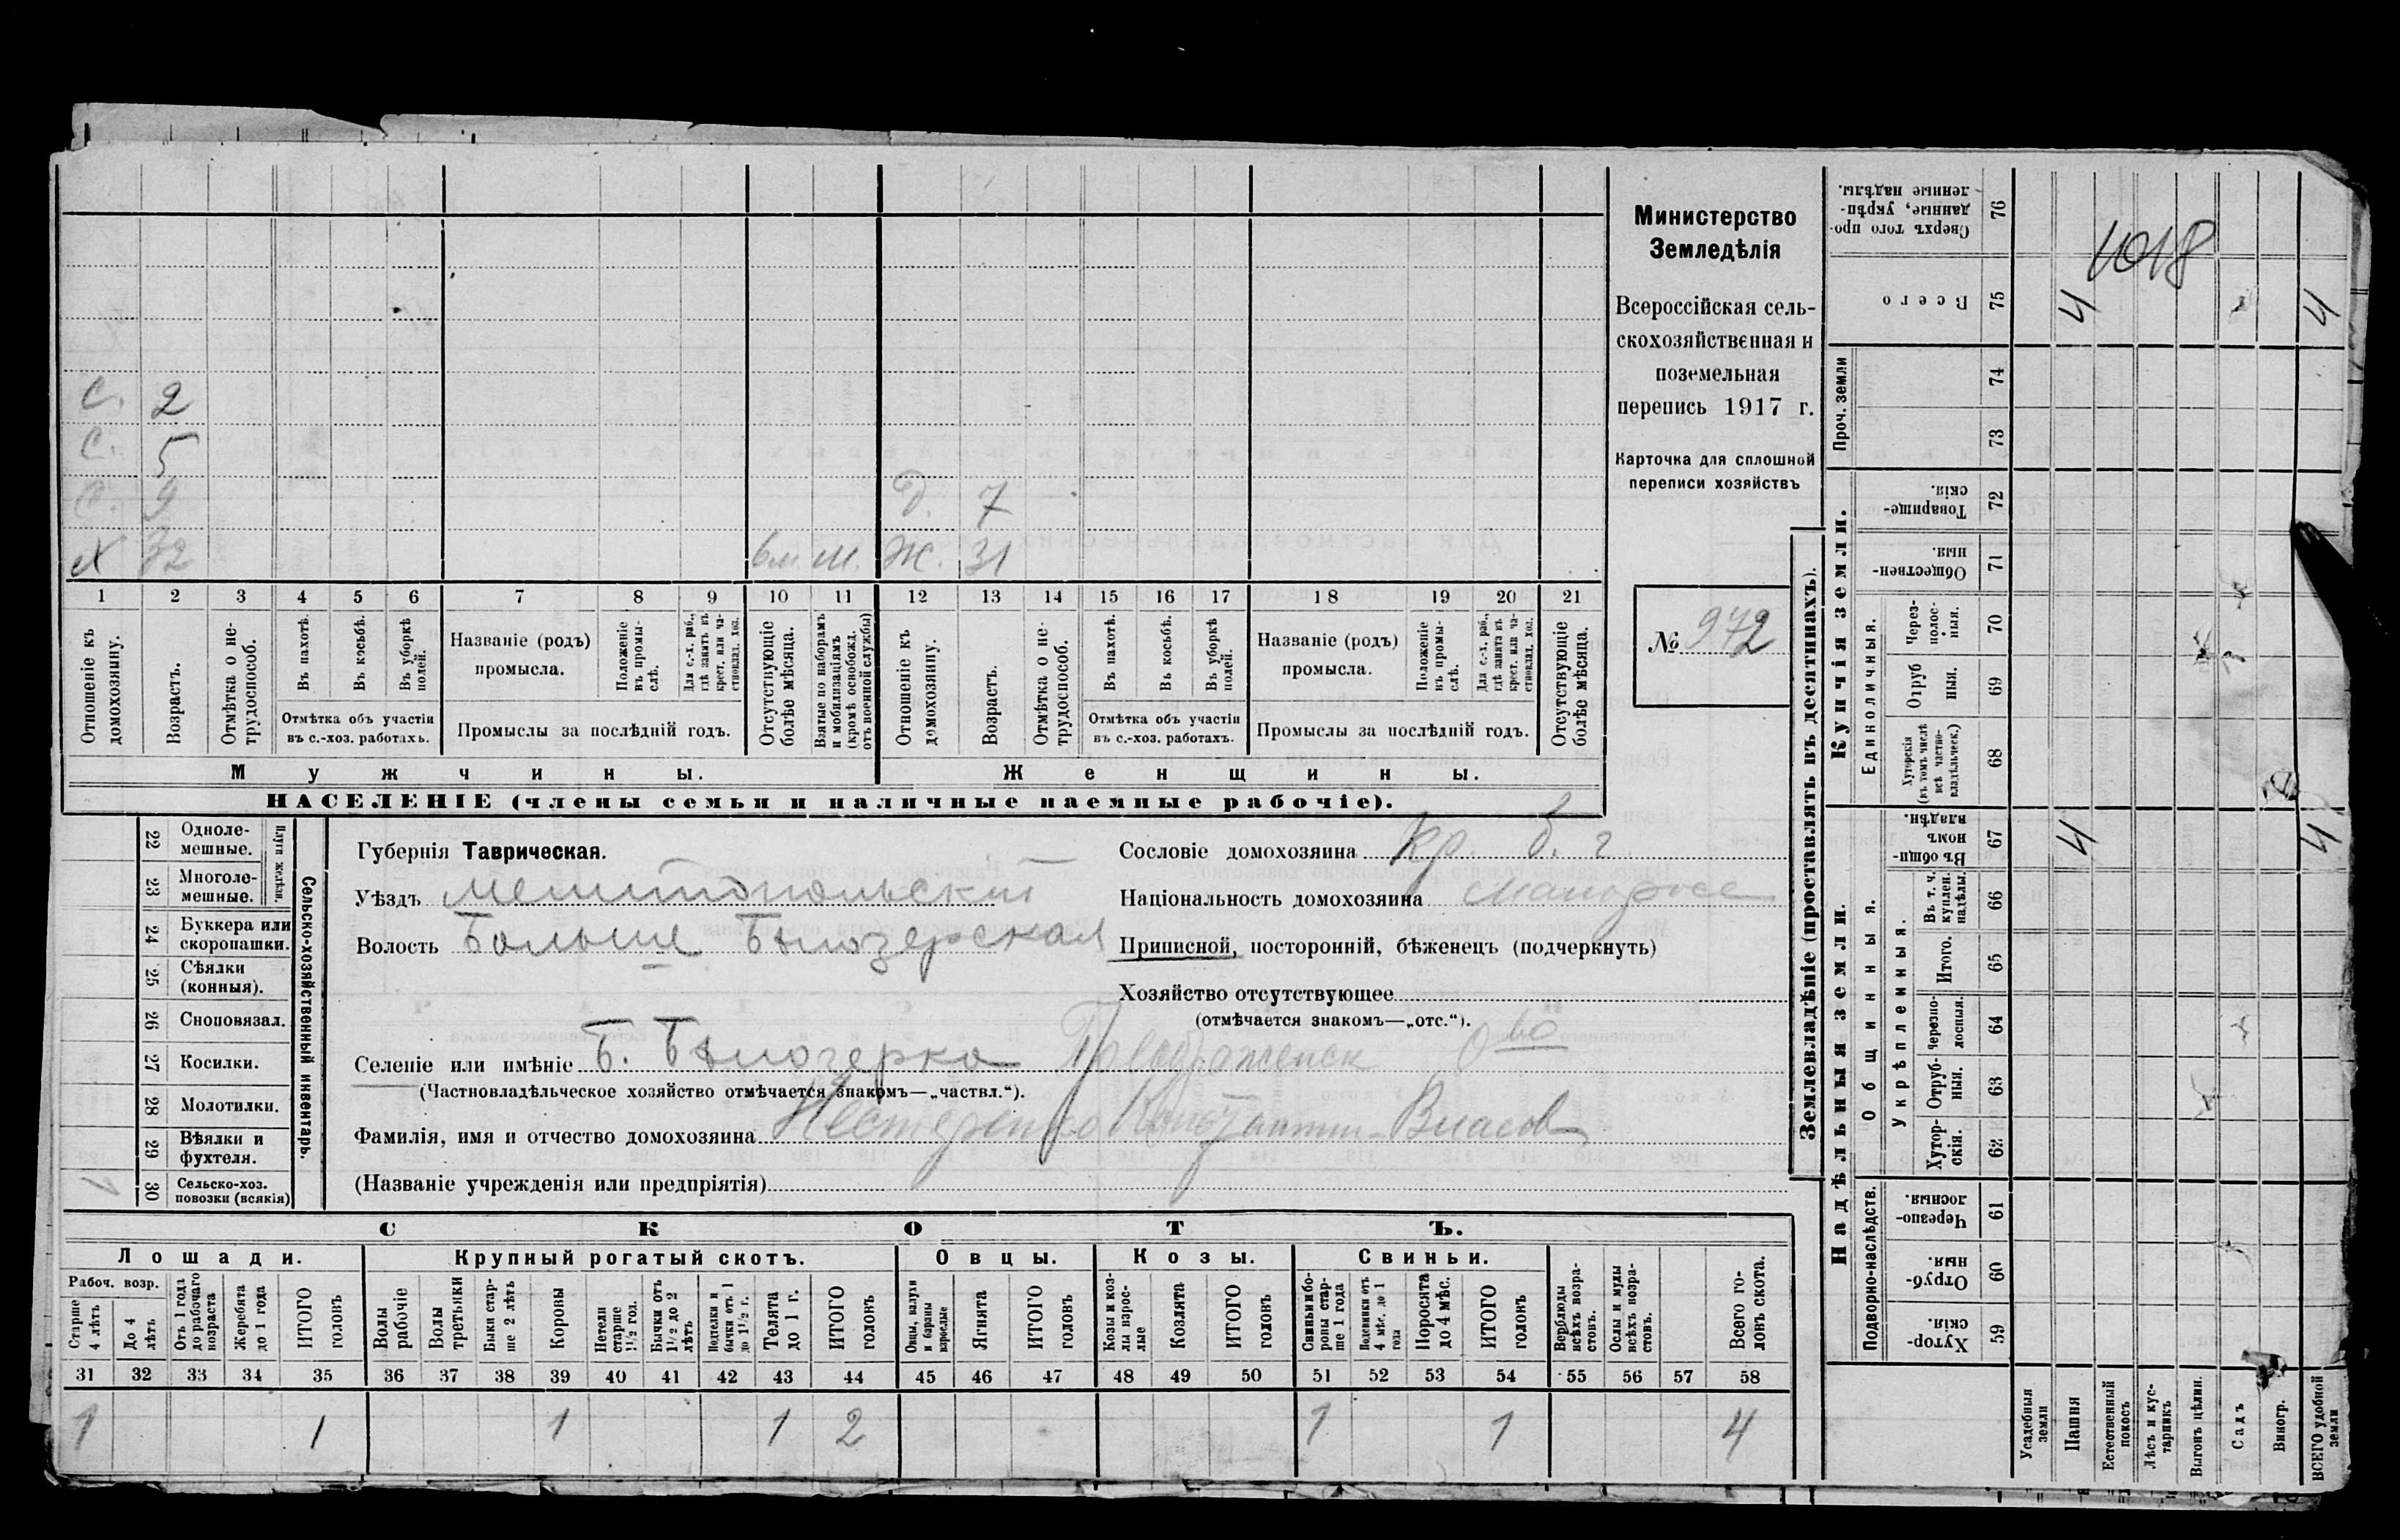 С. 2
С. 5
С. 9 Д. 7
Х 32 вм. м. Ж. 31
1 2 3 4 5 6 7 8 9 10 11 12 13 14 15 16 17 18 19 20 21
Отношеніе къ домохозяину.
Возрастъ.
Отмѣтка о не-трудоспособ.
Въ пахотѣ.
Въ косьбѣ.
Въ уборкѣ полей.
Отмѣтка объ участіи въ с.-хоз. работахъ.
Названіе (родъ) промысла.
Положеніе въ промы-слѣ.
Для с.-х. раб., гдѣ занятъ въ крест. или ча-стновлад. хоз.
Промыслы за послѣдній годъ.
Отсутствующіе болѣе мѣсяца.
Взятые по наборамъ и мобилизаціямъ (кромѣ освобожд. отъ военной службы)
Отношеніе къ домохозяину.
Возрастъ.
Отмѣтка о не-трудоспособ.
Въ пахотѣ.
Въ косьбѣ.
Въ уборкѣ полей.
Отмѣтка объ участіи въ с.-хоз. работахъ.
Названіе (родъ) промысла.
Положеніе въ промы-слѣ.
Для с.-х. раб., гдѣ занятъ въ крест. или ча-стновлад. хоз.
Промыслы за послѣдній годъ.
Отсутствующіе болѣе мѣсяца.
Мужчины. Женщины.
НАСЕЛЕНІЕ (члены семьи и наличные наемные рабочіе).
Министерство
Земледѣлія
Всероссійская сель-
скохозяйственная и
поземельная
перепись 1917 г.
Карточка для сплошной
переписи хозяйствъ
№ 972
22 Одноле-мешные.
23 Многоле-мешные.
Плуги желѣзн.
24 Буккера или скоропашки.
25 Сѣялки (конныя).
26 Сноповязал.
27 Косилки.
28 Молотилки.
29 Вѣялки и фухтеля.
30 Сельско-хоз. повозки (всякія)
Сельско-хозяйственный инвентарь.
Губернія Таврическая.
Уѣздъ Мелитопольскій
Волость Больше Бѣлозерская
Сословіе домохозяина кр. б. г.
Національность домохозяина Малоросс
Приписной, посторонній, бѣженецъ (подчеркнуть)
Хозяйство отсутствующее
(отмѣчается знакомъ—„отс.“).
Селеніе или имѣніе Б. Бѣлозерка О во
(Частновладѣльческое хозяйство отмѣчается знакомъ—„частвл.“).
Фамилія, имя и отчество домохозяина Нестеренко Константин Власов
(Названіе учрежденія или предпріятія)
СКОТЪ.
Лошади. Крупный рогатый скотъ. Овцы. Козы. Свиньи.
Рабоч. возр.
Старше 4 лѣтъ
До 4 лѣтъ
Отъ 1 года до рабочаго возраста
Жеребята до 1 года
ИТОГО головъ
Волы рабочіе
Волы третьяки
Быки стар-ше 2 лѣтъ
Коровы
Нетели старше 1½ год.
Бычки отъ 1½ до 2 лѣтъ
Подтелки и бычки отъ 1 до 1½ г.
Телята до 1 г.
ИТОГО головъ
Овцы, валухи и бараны взрослые
Ягнята
ИТОГО головъ
Козы и коз-лы взрос-лые
Козлята
ИТОГО головъ
Свиньи и бо-ровы стар-ше 1 года
Подсвинки отъ 4 мѣс. до 1 года
Поросята до 4 мѣс.
ИТОГО головъ
Верблюды всѣхъ возра-стовъ.
Ослы и мулы всѣхъ возра-стовъ.
Всего го-ловъ скота.
31 32 33 34 35 36 37 38 39 40 41 42 43 44 45 46 47 48 49 50 51 52 53 54 55 56 57 58
1 1 1 1 2 1 1 4
Землевладѣніе (проставлять въ десятинахъ).
1018
Сверхъ того про-данные, укрѣп-ленные надѣлы. 76
Всего 75 4 4
Проч. земли 74 73
Купчія земли.
Товарище-скія. 72
Обществен-ныя. 71
Единоличныя.
Через-полос-ныя. 70
Отруб-ныя. 69
Хуторскія (въ томъ числѣ всѣ частно-владѣльческ.) 68
Надѣльныя земли.
Общинныя.
Въ общи-номъ владѣн. 67 4 4
Укрѣпленныя.
Въ т. ч. куплен. надѣлы. 66
Итого. 65
Черезпо-лосныя. 64
Отруб-ныя. 63
Хутор-скія. 62
Подворно-наслѣдств.
Черезпо-лосныя. 61
Отруб-ныя. 60
Хутор-скія. 59
Усадебныя земли
Пашня
Естественный покосъ
Лѣсъ и кус-тарникъ
Выгонъ цѣлин.
Садъ
Виногр.
ВСЕГО удобной земли